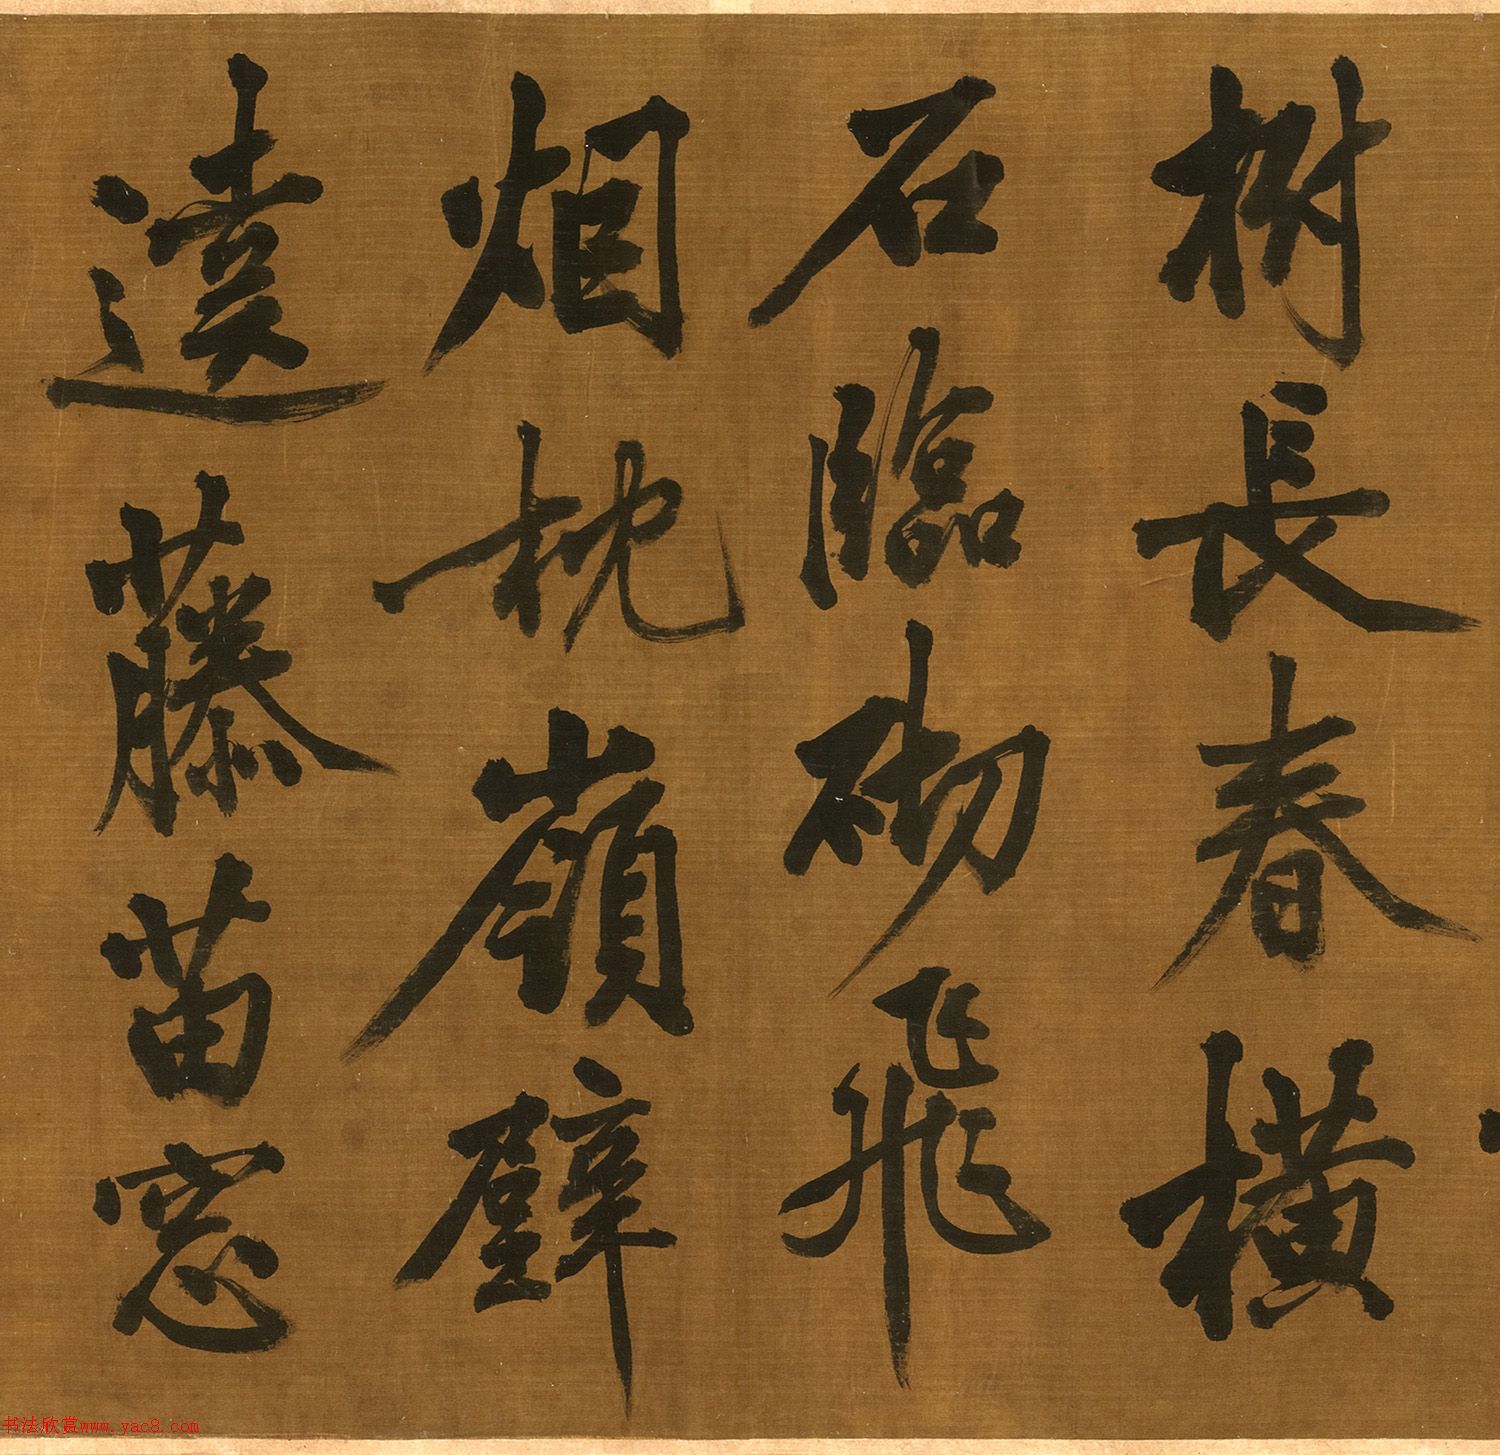 樹長春橫
石臨砌飛
烟枕嶺壁
達藤苗窓
书法欣赏www.yac8.com